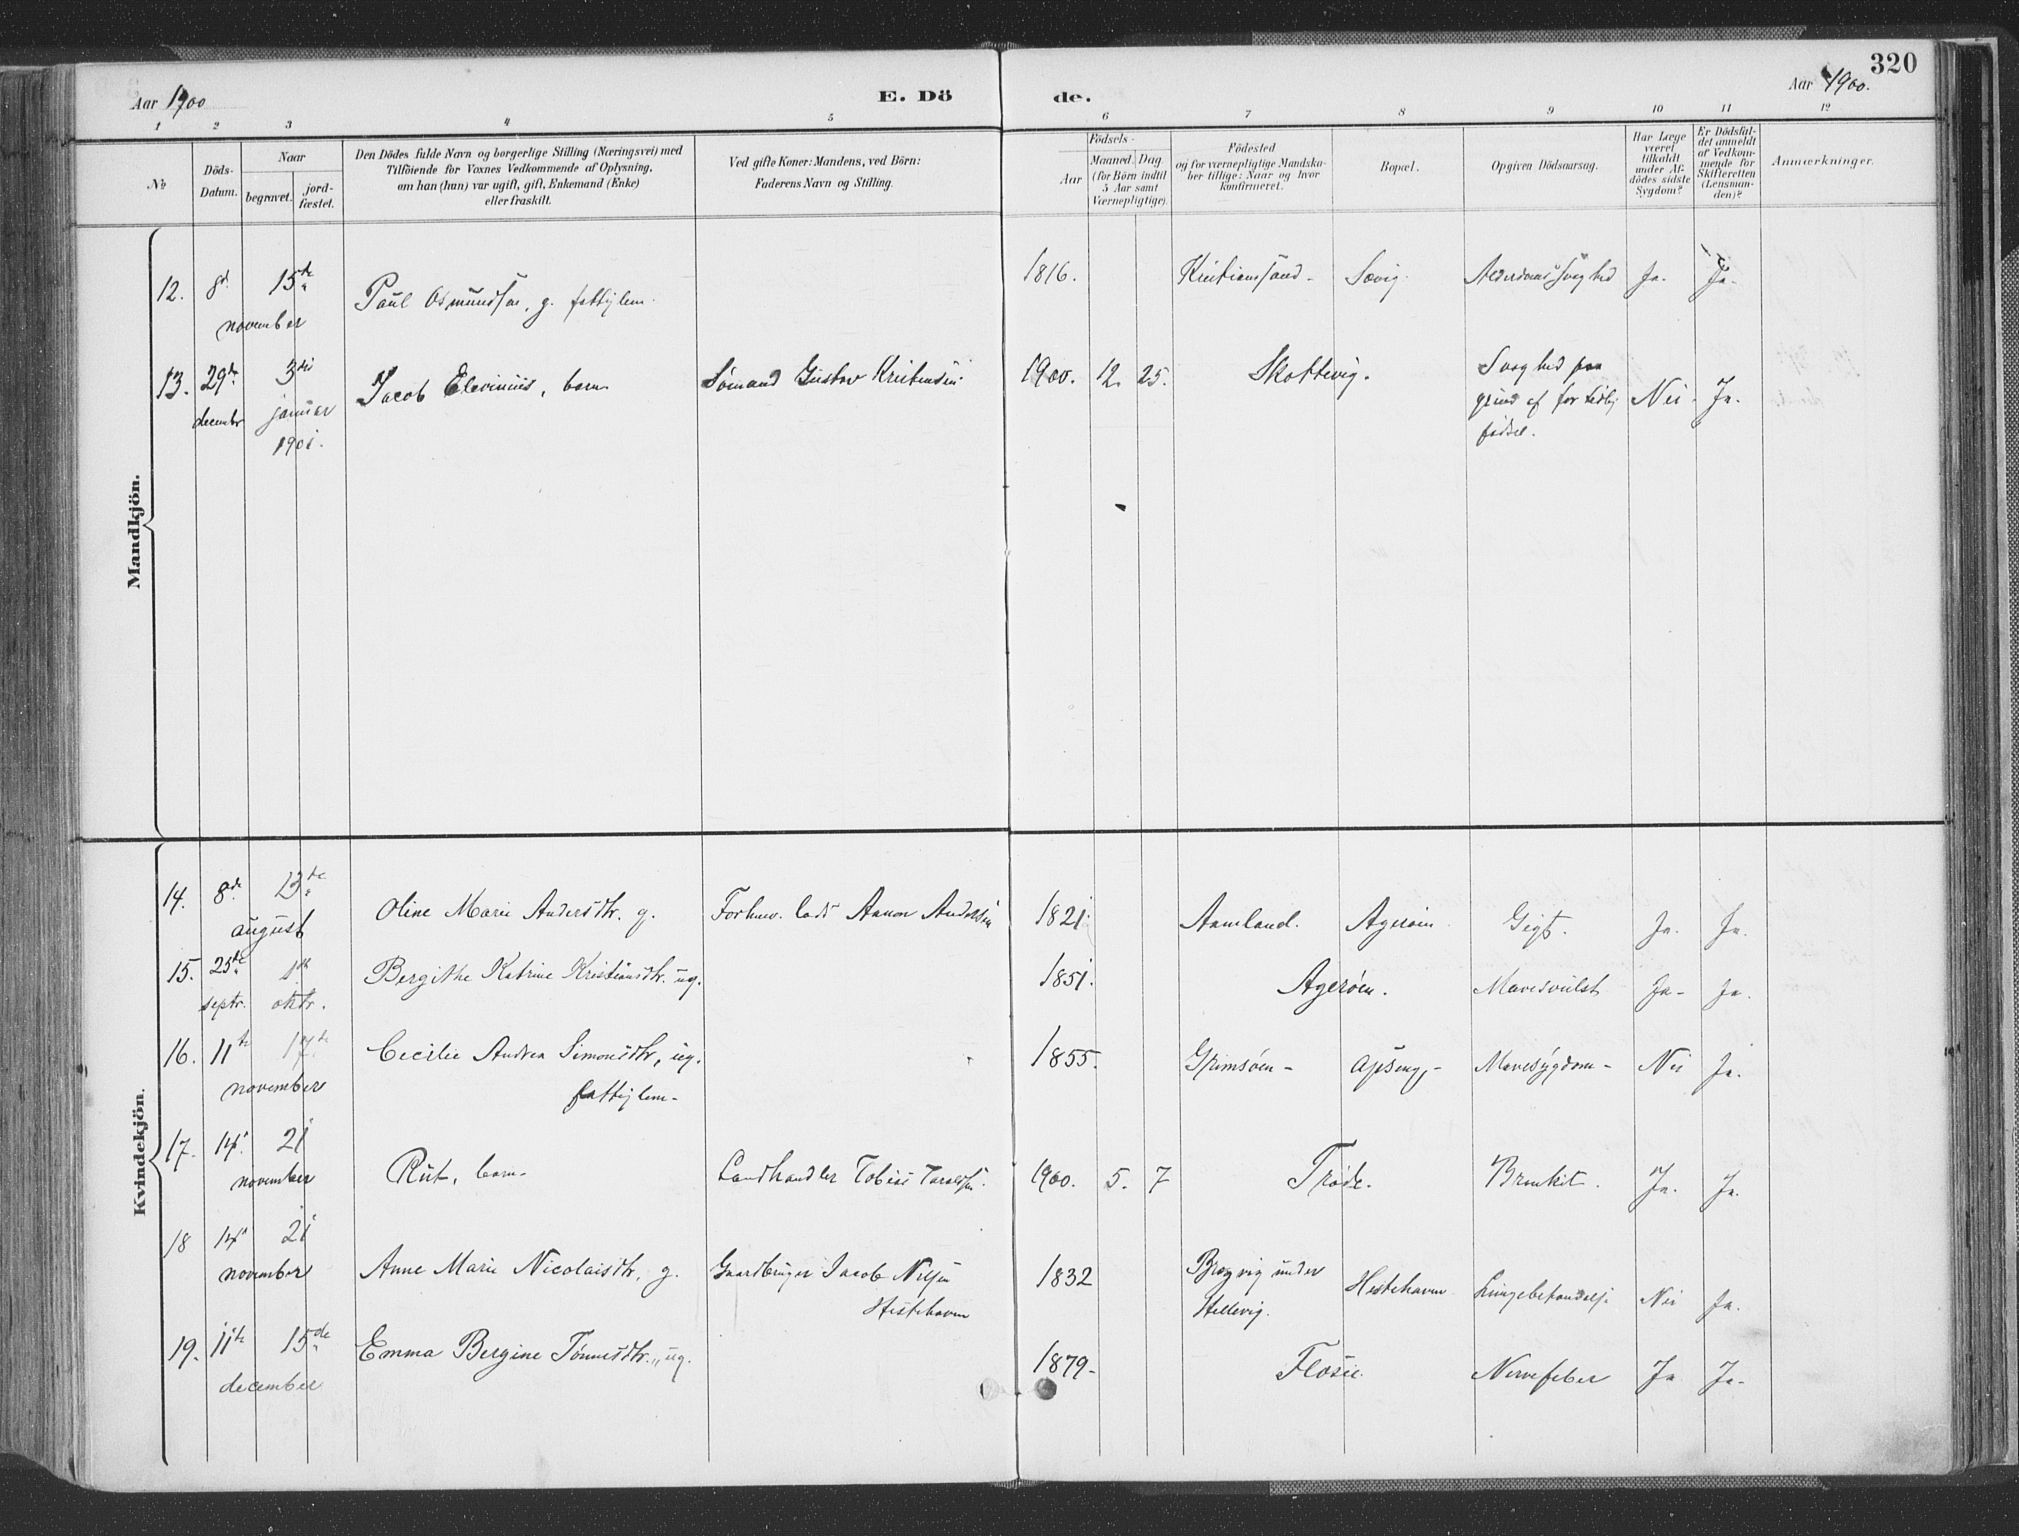 320
Aar 1900
E. Dö
de.
Aar 1900.
1 2 3 4 5 6 7 8 9 10 11 12
№
Döds-
Datum.
Naar
begravet.
jord-
fæstet.
Den Dödes fulde Navn og borgerlige Stilling (Næringsvei) med
Tilföiende for Voxnes Vedkommende af Oplysning,
om han (hun) var ugift, gift, Enkemand (Enke)
eller fraskilt.
Ved gifte Koner: Mandens, ved Börn:
Faderens Navn og Stilling.
Födsels-
Aar
Maaned.
Dag.
(for Börn indtil
5 Aar samt
Værnepligtige).
Födested
og for værnepligtige Mandska-
ber tillige: Naar og hvor
konfirmeret.
Bopæl.
Opgiven Dödsaarsag.
Har Læge
været
tilkaldt
under Af-
dödes sidste
Sygdom?
Er Dödsfal-
det anmeldt
af Vedkom-
mende for
Skifteretten
(Lensman-
den)?
Anmærkninger.
Mandkjön.
12. 8d. 15de Paul Osmundsen, g. fattiglem. 1816. Kristianssand- Sævig. Alderdomssvaghed Ja. Ja.
november
13. 29de 3die Jacob Elevinius, barn. Sømand Gustav Kristensen. 1900. 12. 25. Skottevig. Svaghed paa
decembr januar grund af for tidlig Nei. Ja.
1901. fødsel.
Kvindekjön.
14. 8de 13de Oline Marie Andersdtr. g. Forhenv. lods Aanon Andersen 1821. Aamland. Agerøen. Gigt. Ja. Ja.
august
15. 25de 1ste Bergithe Katrine Kristiansdtr. ug. 1851. Agerøen. Mavesvulst Ja- Ja.
septr. oktr.
16. 11te 17de Cecilie Andrea Simonsdtr, ug. 1855. Grimsøen- Mavesygdom- Nei Ja.
november fattiglem-
17. 14. 21 Rut, barn- Landhandler Tobias Taraldsen. 1900. 5. 7 Trøde. Bronkit. Ja. Ja.
november
18 14. 21 Anne Marie Nicolaisdtr, g. Gaardbruger Jacob Nilsen 1832 under Hestehaven Nei Ja.
november Hestehaven Hellevig.
19. 11te 15de Emma Bergine Tønnesdtr., ug. 1879- Flosie. Nervefeber Ja Ja-
december